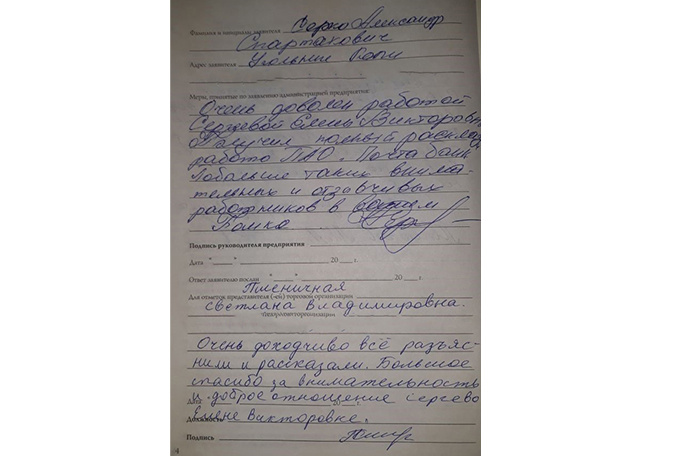 Фамилия и инициалы заявителя Серко Александр
Спартакович
Адрес заявителя Угольные Копи
Меры, принятые по заявлению администрацией предприятия:
Очень доволен работой
Сергеевой Елены Викторовн
Получил полный расклад
работо ПАО. Почта банк
Побольше таких внима-
тельных и отзавчивых
работников в вашем
Банко
Подпись руководителя предприятия
Дата " " 20 г.
Ответ заявителю послан " " 20 г.
Пшеничная
Для отметок представителя (-ей) торговой организации
светлана Владимировна.
Очень доходчиво всё разъяс-
нили и рассказали. Большое
спасибо за внимательность
и доброе отношение сергево
Дата:
Елене Викторовке.
Должность
Подпись
4